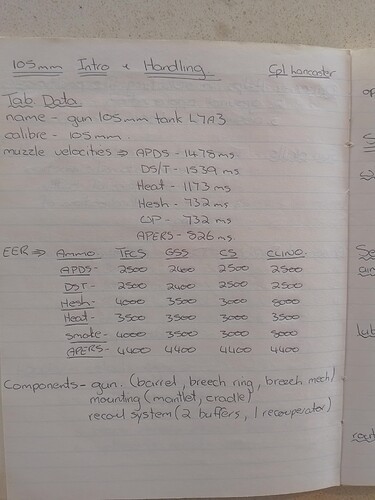 105mm Intro & Handling Cpl Lancaster
Tab. Data.
name - gun 105mm tank L7A3
calibre - 105mm.
muzzle velocities ⇒ APDS - 1478 ms
DS/T - 1539 ms
Heat - 1173 ms
Hesh - 732 ms
WP - 732 ms
APERS - 826 ms.
EER ⇒ Ammo TFCS GSS CS CLINO.
APDS - 2500 2400 2500 2500
DST - 2500 2400 2500 2500
Hesh - 4000 3500 3000 8000
Heat - 3500 3500 3000 3500
smoke - 4000 3500 3000 8000
APERS - 4400 4400 4400 4400
Components - gun. (barrel, breech ring, breech mech)
mounting (mantlet, cradle)
recoil system (2 buffers, 1 recouperator)